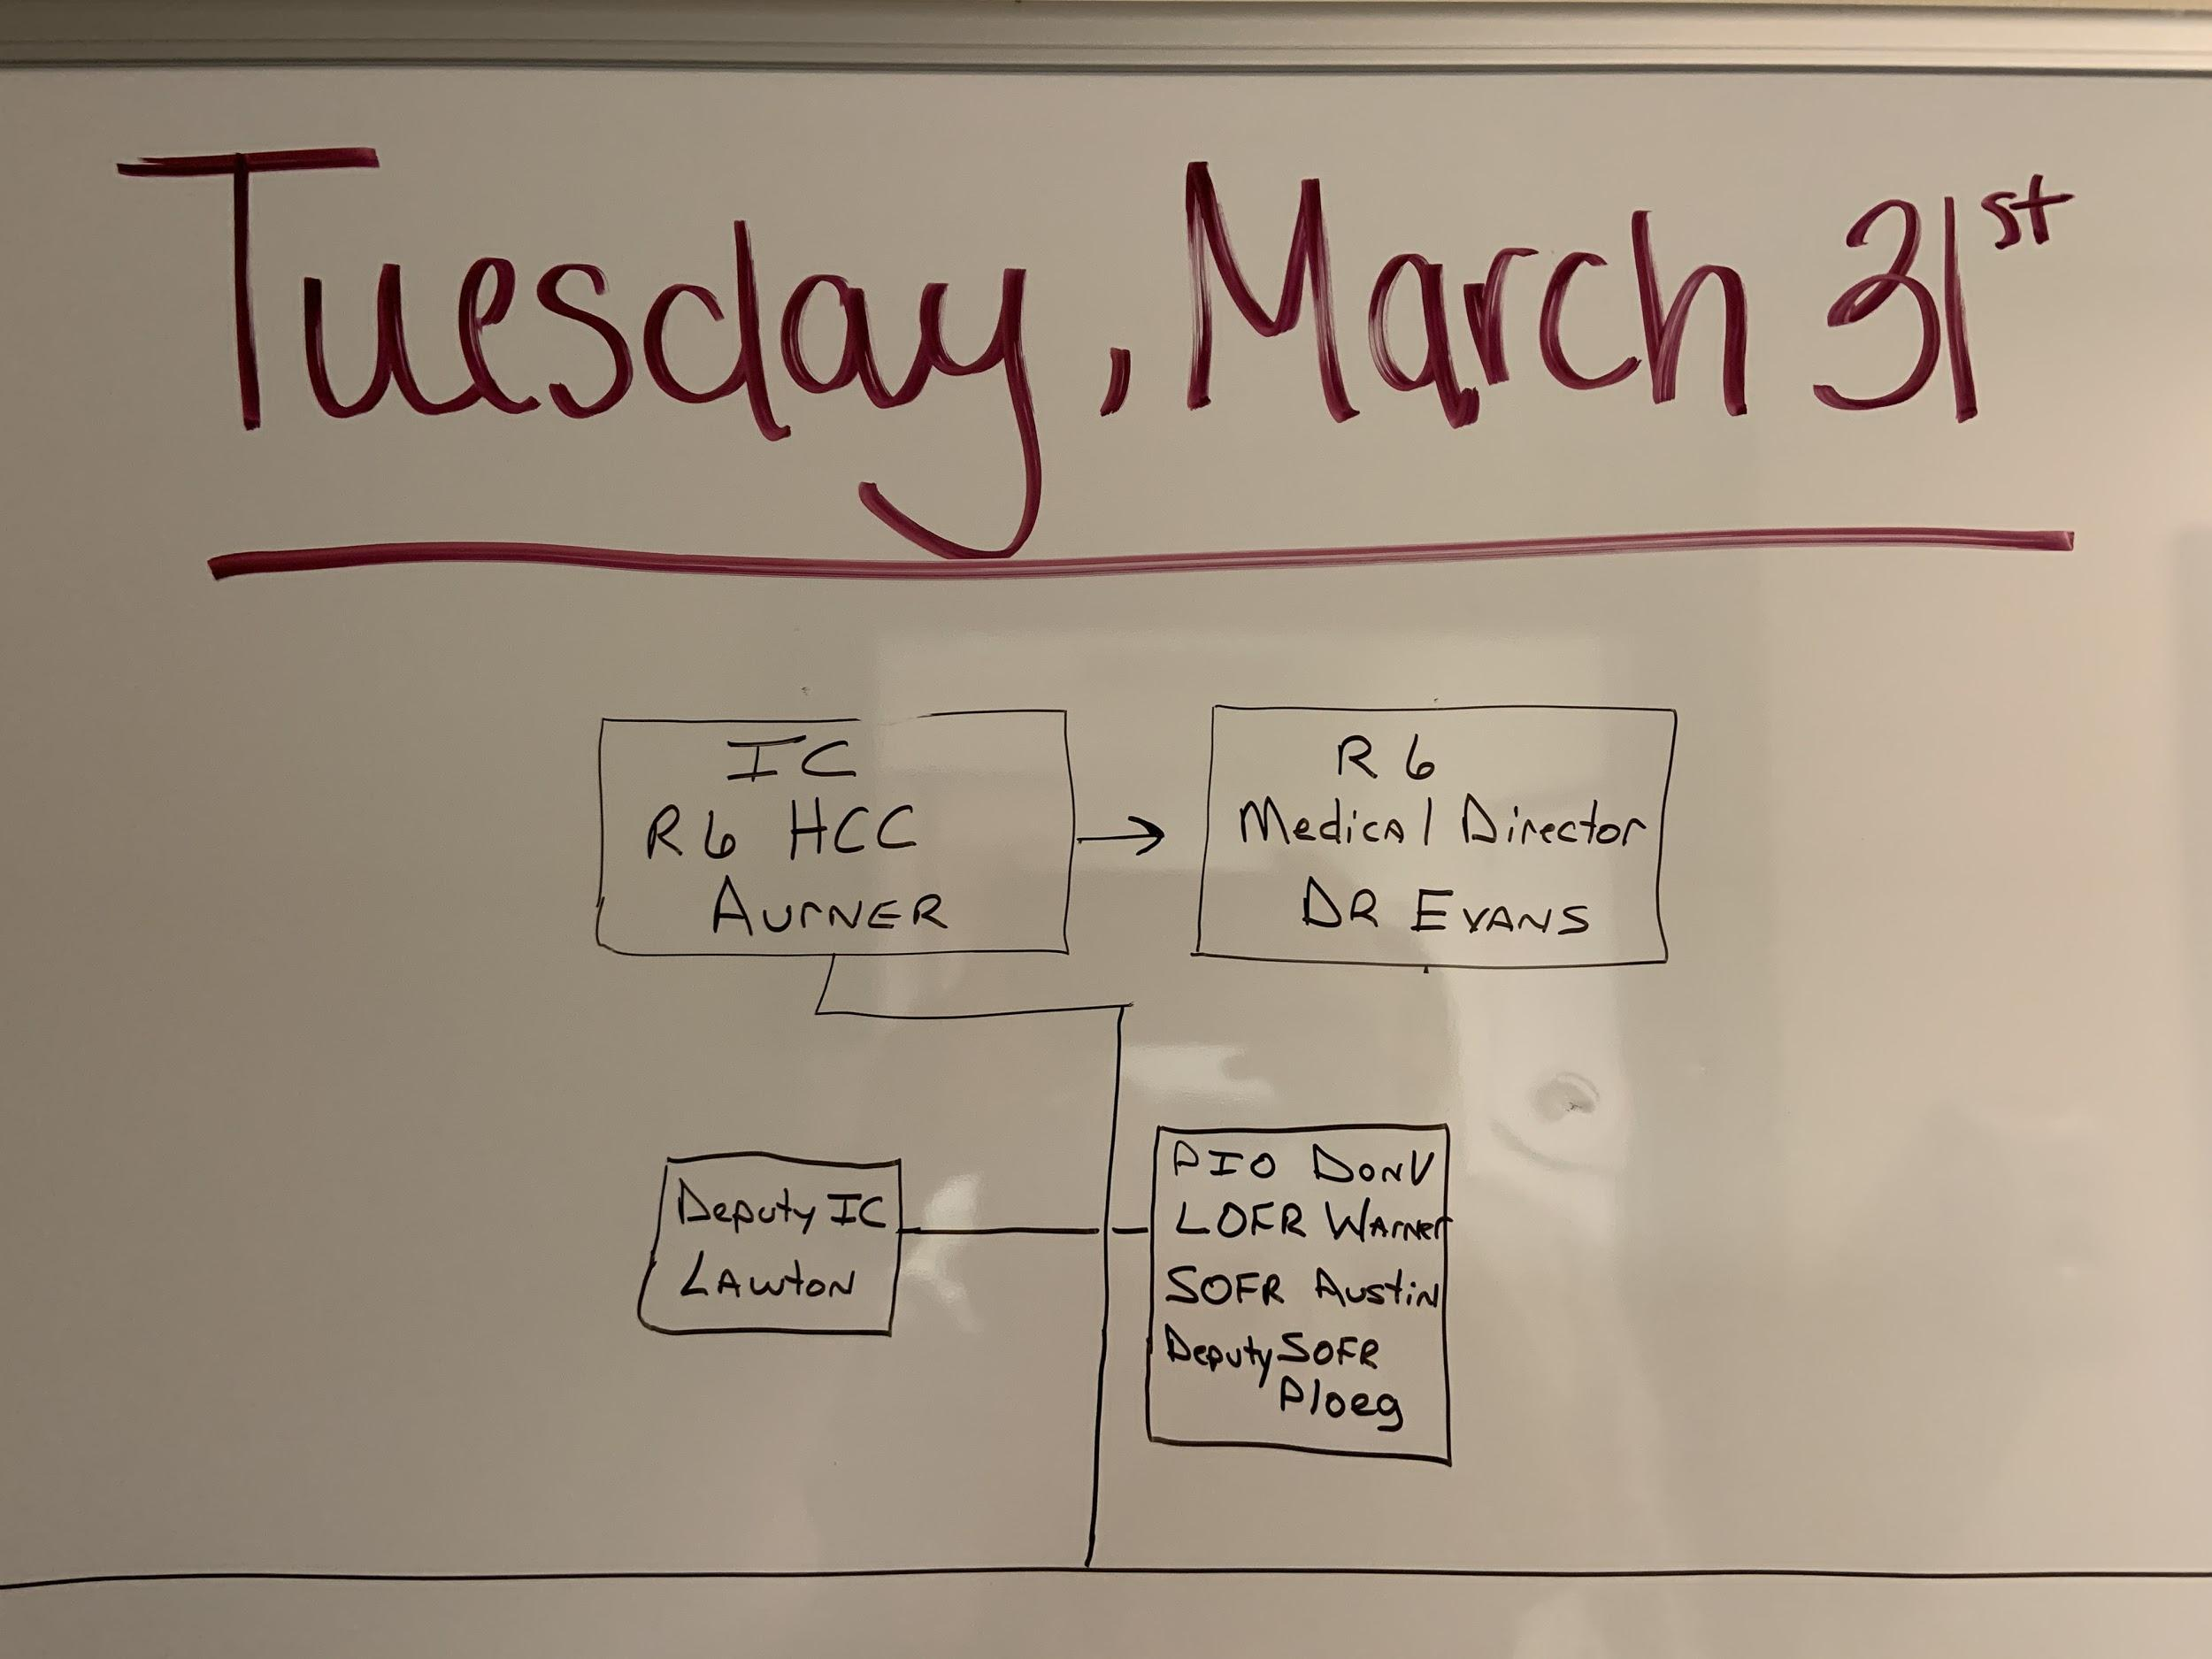 Tuesday, March 31st
IC
R6 HCC
AURNER
R6
Medical Director
DR EVANS
Deputy IC
LAWTON
PIO DonV
LOFR Warner
SOFR Austin
Deputy SOFR
Ploeg